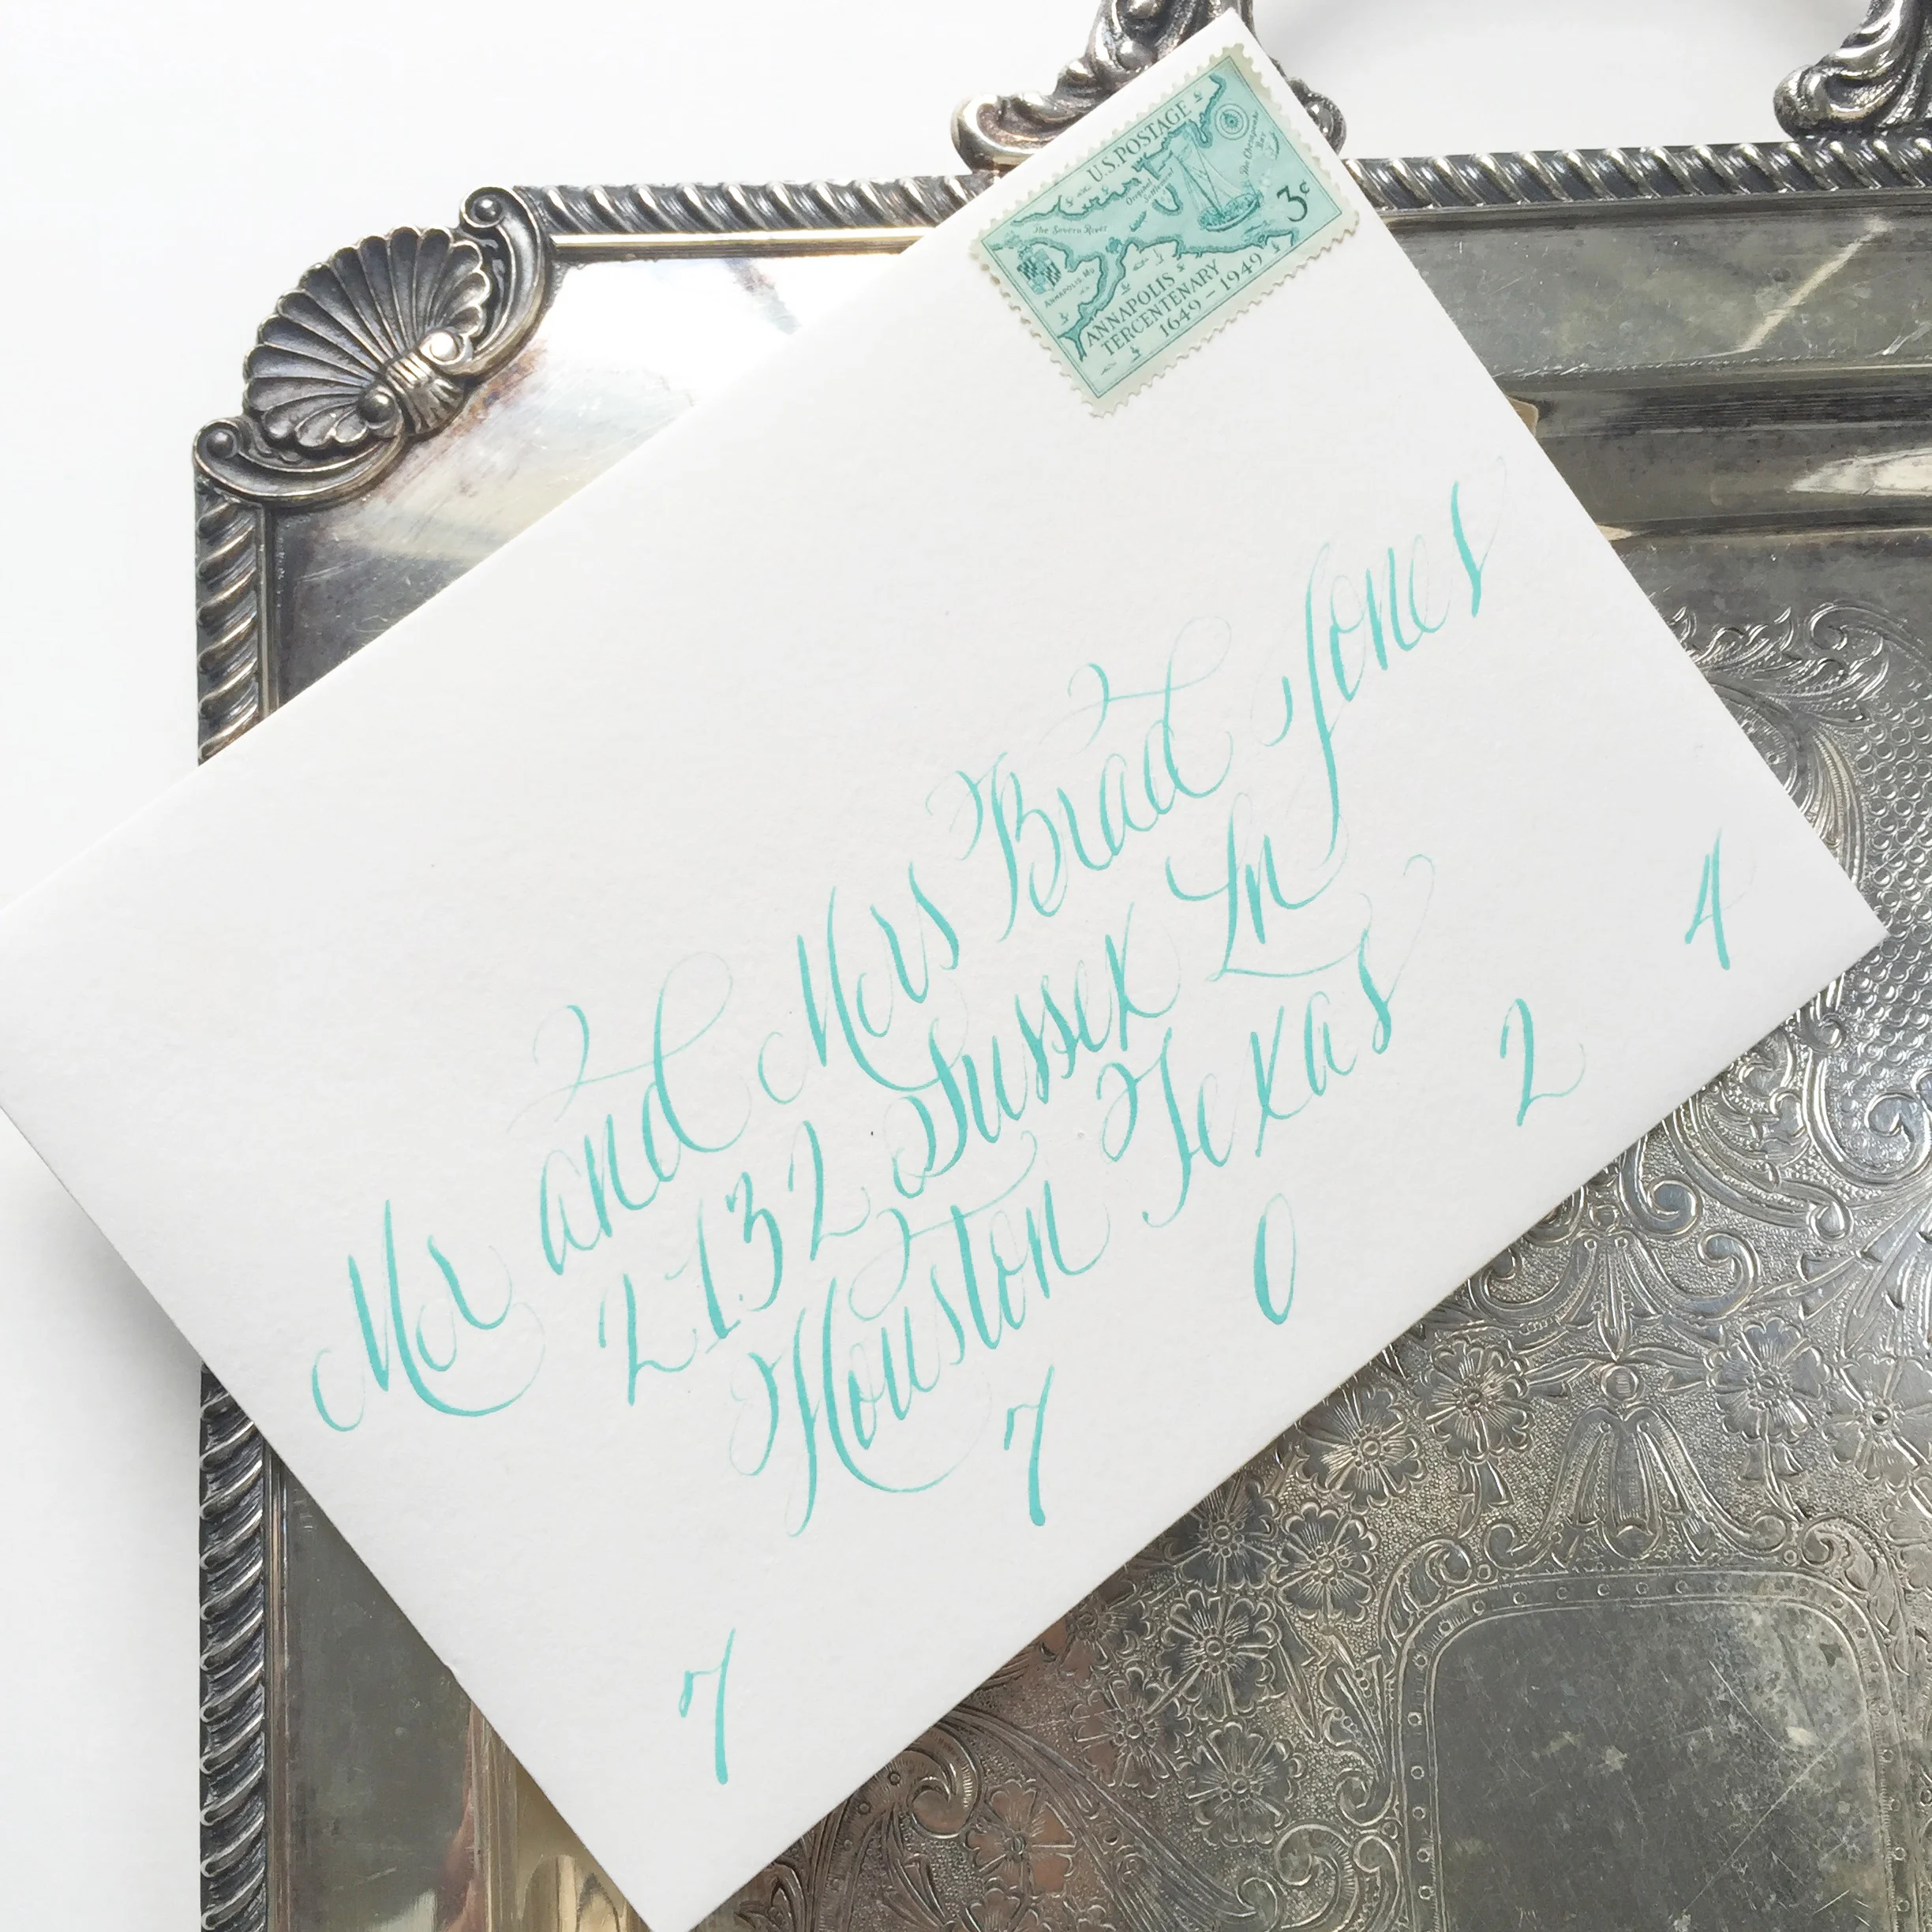 U.S. POSTAGE
The Severn River
3¢
ANNAPOLIS, Md
ANNAPOLIS
TERCENTENARY
1649-1949
Mr and Mrs Brad Jones
2132 Sussex Ln
Houston Texas
7 7 0 2 4